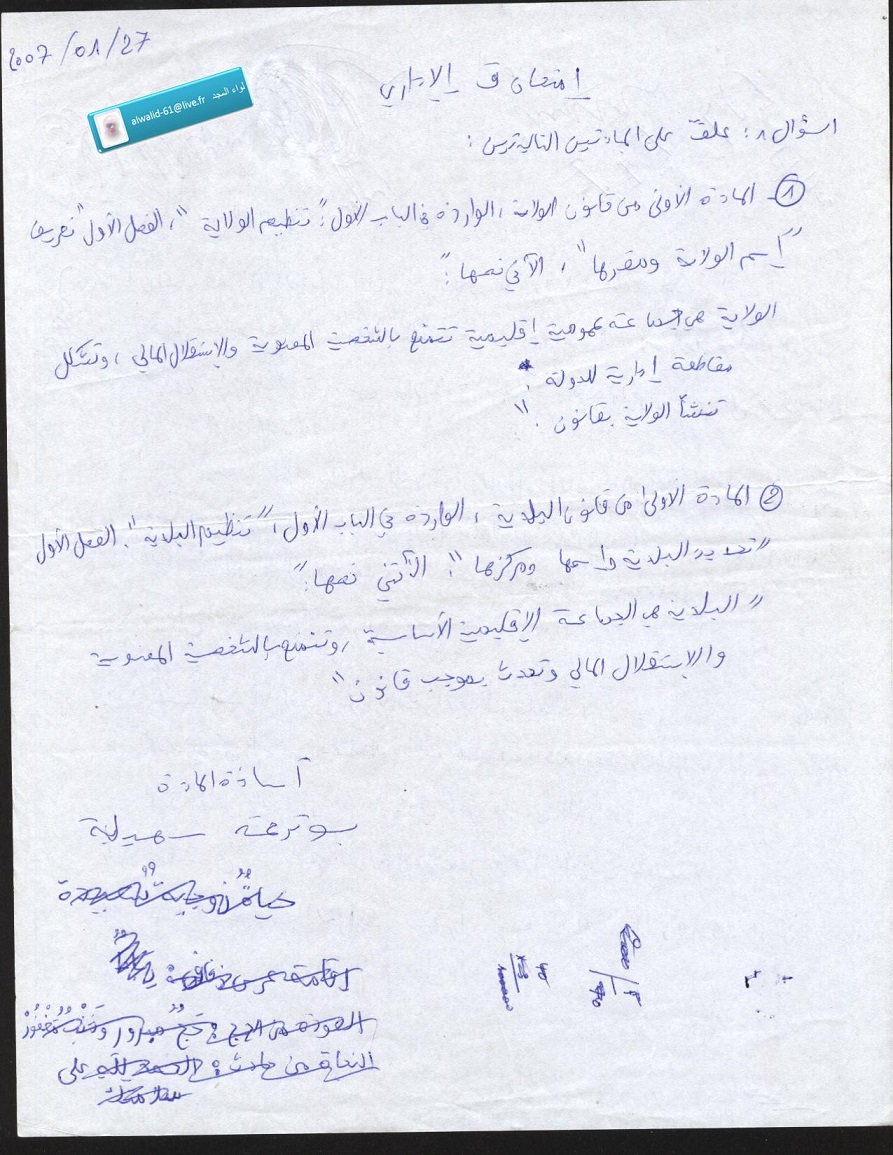 2007/01/27
لواء المجد alwalid-61@live.fr
إمتحان ق الإداري
السؤال 1: علق على المادتين التاليتين :
① المادة الأولى من قانون الولاية ، الواردة في الباب الأول: "تنظيم الولاية" ، الفصل الأول "تعريف
إسم الولاية ومقرها" ، الآتي نصها :"
الولاية هي جماعة عمومية إقليمية تتمتع بالشخصية المعنوية والإستقلال المالي ، وتشكل
مقاطعة إدارية للدولة .
تنشأ الولاية بقانون . "
② المادة الأولى من قانون البلدية ، الواردة في الباب الأول، "تنظيم البلدية". الفصل الأول
"تحديد البلدية وإسمها ومركزها" ، الآتي نصها: "
" البلدية هي الجماعة الإقليمية الأساسية ، وتتمتع بالشخصية المعنوية
والاستقلال المالي وتحدث بموجب قانون "
أستاذة المادة
سهيلة
العودة من الحج : حج مبرور وذنب مغفور
النجاة من حادث : الحمد لله على
سلامتك